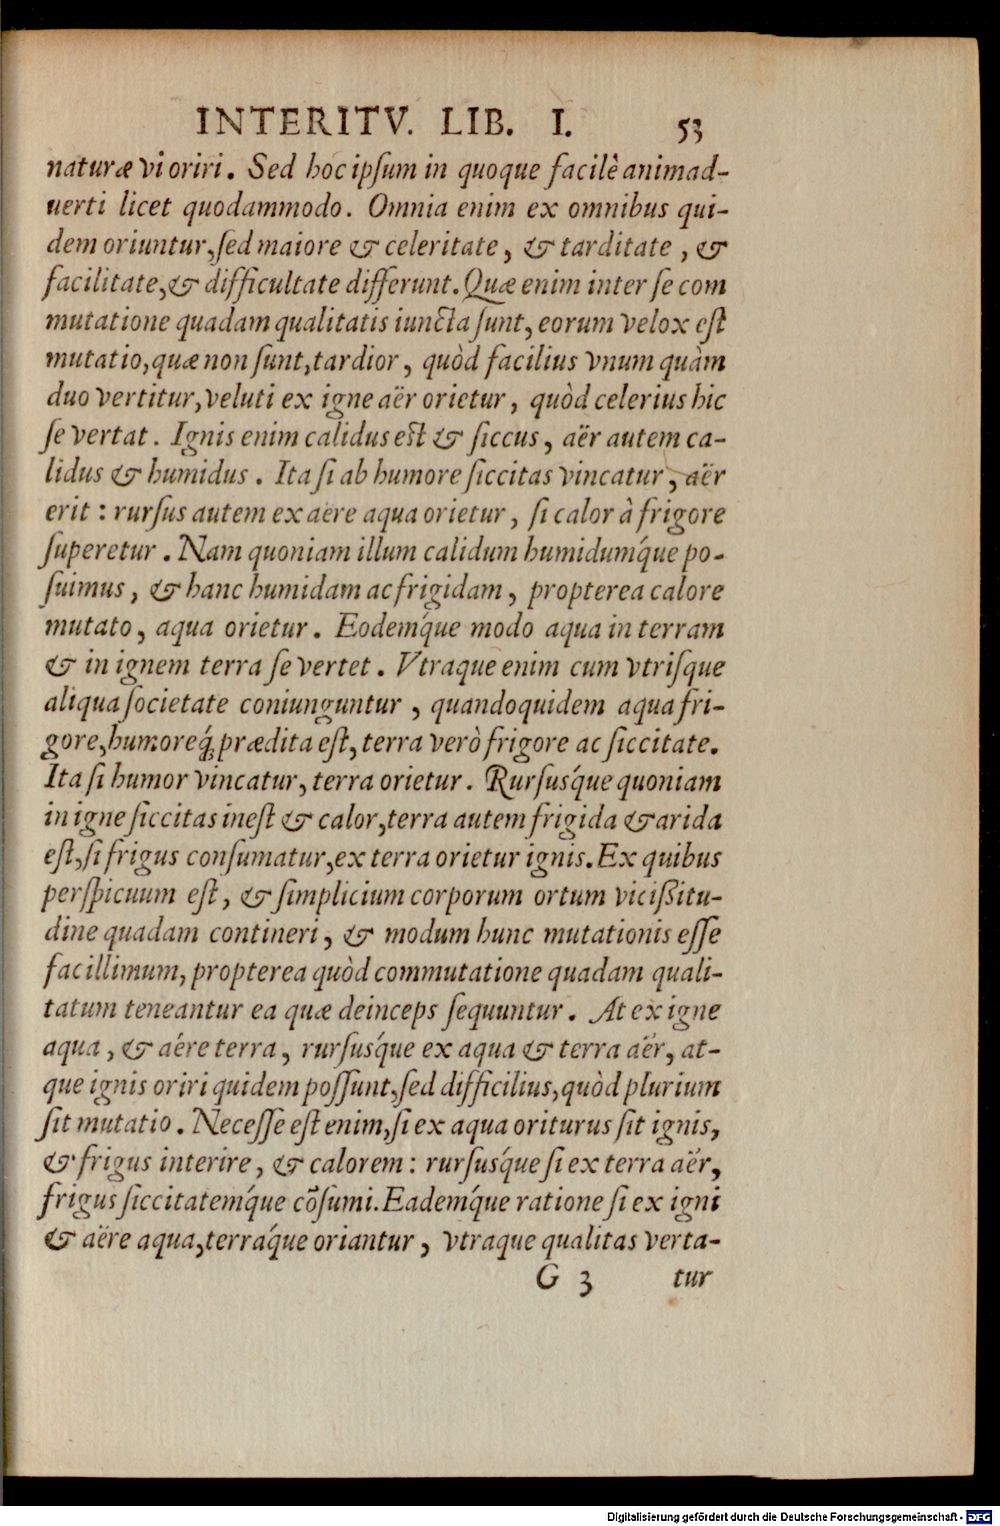 INTERITV. LIB. I. 53
naturæ vi oriri. Sed hoc ipsum in quoque facilè animad-
uerti licet quodammodo. Omnia enim ex omnibus qui-
dem oriuntur, sed maiore & celeritate, & tarditate, &
facilitate, & difficultate differunt. Quæ enim inter se com
mutatione quadam qualitatis iuncta sunt, eorum velox est
mutatio, quæ non sunt, tardior, quòd facilius vnum quàm
duo vertitur, veluti ex igne aër orietur, quòd celerius hic
se vertat. Ignis enim calidus est & siccus, aër autem ca-
lidus & humidus. Ita si ab humore siccitas vincatur, aër
erit: rursus autem ex aëre aqua orietur, si calor à frigore
superetur. Nam quoniam illum calidum humidumq́ue po-
suimus, & hanc humidam ac frigidam, propterea calore
mutato, aqua orietur. Eodemq́ue modo aqua in terram
& in ignem terra se vertet. Vtraque enim cum vtrisque
aliqua societate coniunguntur, quandoquidem aqua fri-
gore, humoreq́; prædita est, terra verò frigore ac siccitate.
Ita si humor vincatur, terra orietur. Rursusq́ue quoniam
in igne siccitas inest & calor, terra autem frigida & arida
est, si frigus consumatur, ex terra orietur ignis. Ex quibus
perspicuum est, & simplicium corporum ortum vicißitu-
dine quadam contineri, & modum hunc mutationis esse
facillimum, propterea quòd commutatione quadam quali-
tatum teneantur ea quæ deinceps sequuntur. At ex igne
aqua, & aëre terra, rursusq́ue ex aqua & terra aër, at-
que ignis oriri quidem possunt, sed difficilius, quòd plurium
sit mutatio. Necesse est enim, si ex aqua oriturus sit ignis,
& frigus interire, & calorem: rursusq́ue si ex terra aër,
frigus siccitatemq́ue cõsumi. Eademq́ue ratione si ex igni
& aëre aqua, terraq́ue oriantur, vtraque qualitas verta-
G 3 tur
Digitalisierung gefördert durch die Deutsche Forschungsgemeinschaft - DFG